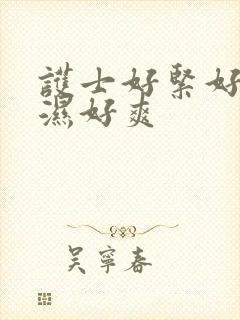 護士好緊好
濕好爽
吳寧春